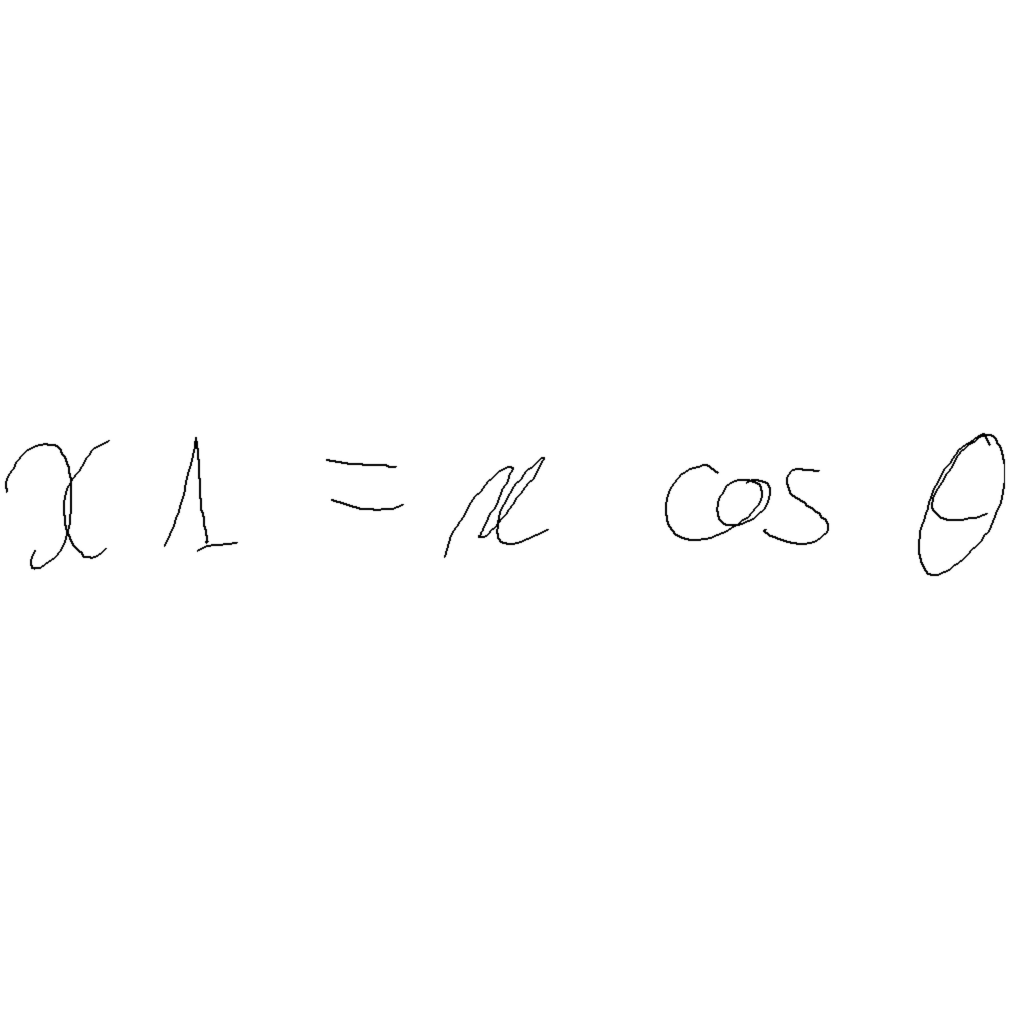 x 1 = r cos θ